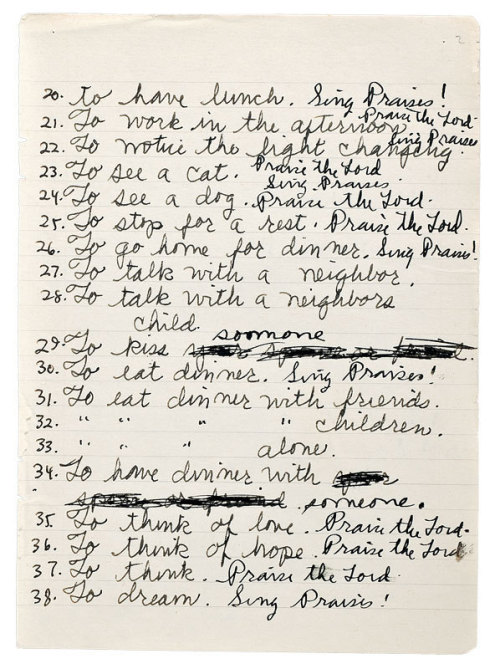 2
20. to have lunch. Sing Praises!
21. To work in the afternoon Praise the Lord.
22. To notice the light changing. Sing Praises
23. To see a cat. Praise the Lord
Sing Praises.
24. To see a dog. Praise the Lord.
25. To stop for a rest. Praise the Lord.
26. To go home for dinner. Sing Praises!
27. To talk with a neighbor.
28. To talk with a neighbors
child.
29. To kiss soomone
30. To eat dinner. Sing Praises!
31. To eat dinner with friends.
32. " " " " children.
33. " " " alone.
34. To have dinner with
someone.
35. To think of love. Praise the Lord.
36. To think of hope. Praise the Lord
37. To think. Praise the Lord.
38. To dream. Sing Praises!